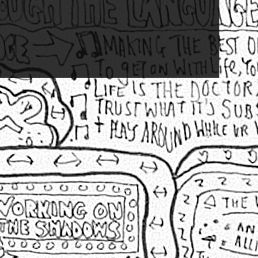 OUGH THE LANGUAGE
MAKING THE BEST O
TO GET ON WITH LIFE, YO
LIFE IS THE DOCTOR
TRUST WHAT IT'S SUBS
+ PLAY AROUND WHILE UR
THE W
WORKING ON
& AN
THE SHADOWS
ALLI